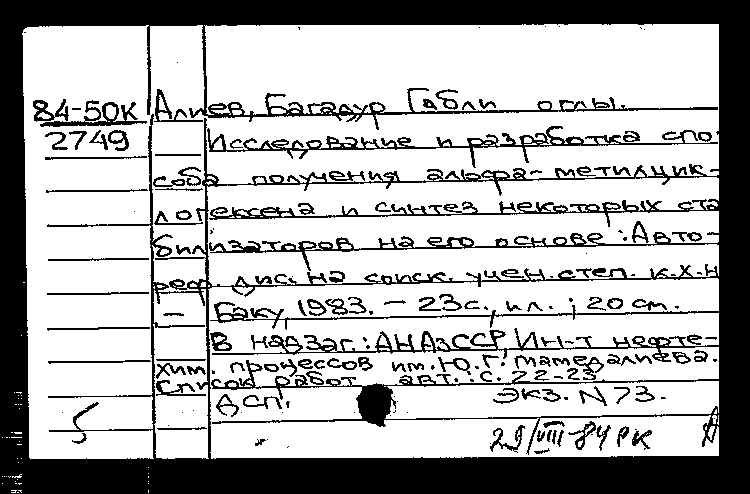 84-50К Алиев, Багадур Габли оглы.
2749 Исследование и разработка спо-
соба получения альфа-метилцик-
логексена и синтез некоторых ста
билизаторов на его основе : Авто-
реф. дис. на соиск. учен. степ. к.х.н
- Баку, 1983. - 23 с., ил. ; 20 см.
В надзаг. : АН АзССР, Ин-т нефте-
хим. процессов им. Ю.Г. Мамедалиева.
Список работ авт. : с. 22-23
ДСП. Экз. N 73.
5
29/VIII-84 РК А